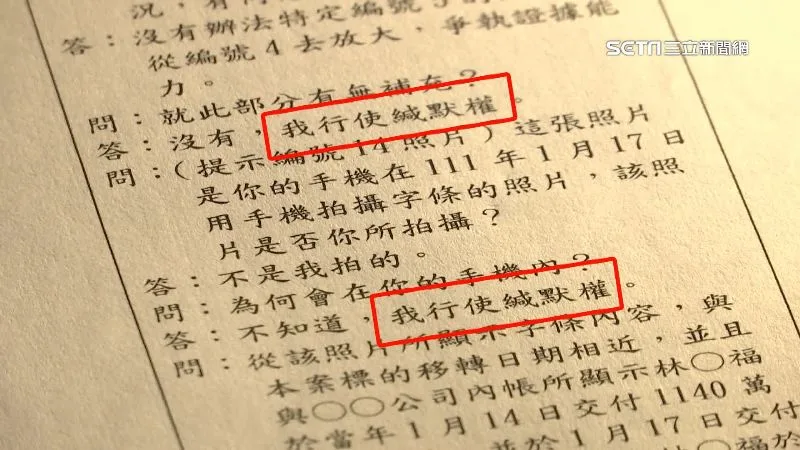 SETN 三立新聞網
況，有
答：沒有辦法特定編號
從編號4去放大，爭執證據能
力。
問：就此部分有無補充？
答：沒有，我行使緘默權。
問：（提示編號14照片）這張照片
是你的手機在111年1月17日
用手機拍攝字條的照片，該照
片是否你所拍攝？
答：不是我拍的。
問：為何會在你的手機內？
答：不知道，我行使緘默權。
問：從該照片所顯示字條內容，與
本案標的移轉日期相近，並且
與○○公司內帳所顯示林○福
於當年1月14日交付1140萬
並於1月17日交付